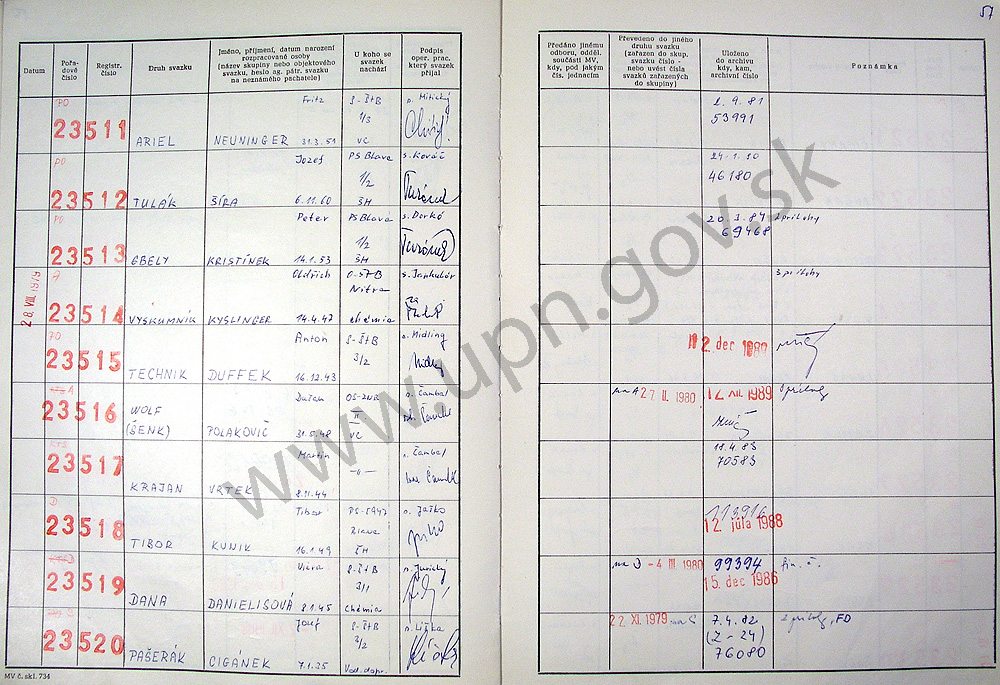 57
Datum
Pořadové číslo
Registr. číslo
Druh svazku
Jméno, příjmení, datum narození rozpracované osoby
(název skupiny nebo objektového svazku, heslo ag. pátr. svazku na neznámého pachatele)
U koho se svazek nachází
Podpis oper. prac. který svazek přijal
Předáno jinému odboru, odděl. součásti MV, kdy, pod jakým čís. jednacím
Převedeno do jiného druhu svazku (zařazen do skup. svazku číslo - nebo uvést čísla svazků zařazených do skupiny)
Uloženo do archivu kdy, kam, archivní číslo
Poznámka
28. VIII. 1979
PO
Fritz
S-ŠtB
s. Mitický
1. 9. 81
23511
1/3
53991
ARIEL NEUNINGER 31.3.51 VC
PO
Jozef
PS Blava
s. Kováč
24.1.80
23512
1/2
46180
TULÁK ŠÍRA 6.11.60 ŠH
PO
Peter
PS Blava
s. Dorkó
20.3.84
2 prílohy
23513
1/2
69468
GBELY KRISTÍNEK 14.1.53 ŠH
A
Oldřich
O-ŠTB
s. Jankulár
3 prílohy
23514
Nitra
VÝSKUMNÍK KYSLINGER 14.4.47 chémia
PO
Anton
S-ŠtB
s. Midling
12. dec 1989
23515
3/2
TECHNIK DUFFEK 16.12.43
A
Dušan
OS-ZNB
s. Čambal
na A 27 II. 1980
12 XII 1989
3 prílohy
23516
WOLF
II
(ŠENK) POLAKOVIČ 31.5.48 VC
Martin
s. Čambal
18.4.85
23517
-"-
70585
KRAJAN VRTEK 8.11.44
D
Tibor
s. Jaško
113916
23518
12. júla 1988
TIBOR KUNIK 16.1.49 ČH
Viera
S-ŠtB
s. Jurický
na D -4 III. 1980
99394
fin. č.
23519
3/1
15. dec 1986
DANA DANIELISOVÁ 8.1.45 Chémia
Jozef
S-ŠtB
s. Líška
22 XI. 1979
7.4.82
2 prílohy, FO
23520
2/2
(Z-24)
PAŠERÁK CIGÁNEK 7.1.35 Vod.dopr.
76080
MV č. skl. 734
www.upn.gov.sk